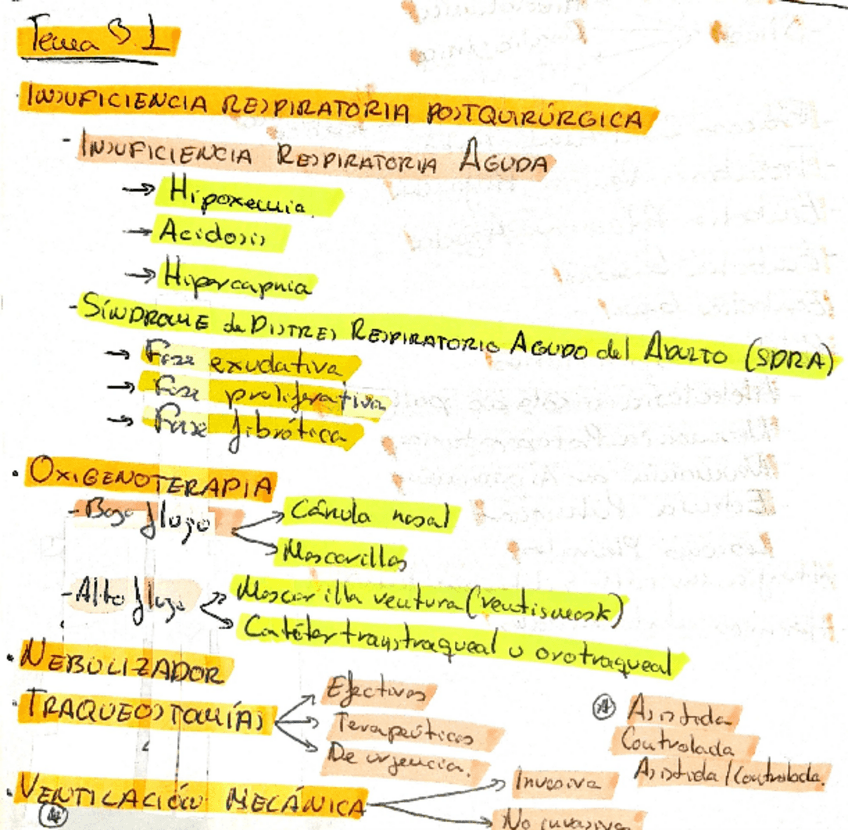 Tema 3.1
· INSUFICIENCIA RESPIRATORIA POSTQUIRÚRGICA
- INSUFICIENCIA RESPIRATORIA AGUDA
→ Hipoxemia.
→ Acidosis
→ Hipercapnia
- SÍNDROME de DISTRES RESPIRATORIO AGUDO del ADULTO (SDRA)
→ Fase exudativa
→ Fase proliferativa
→ Fase fibrótica
· OXIGENOTERAPIA
- Bajo flujo → Cánula nasal
→ Mascarillas
- Alto flujo → Mascarilla ventura (ventismask)
→ Catéter transtraqueal u orotraqueal
· NEBULIZADOR
· TRAQUEOSTOMÍAS → Efectivas
→ Terapeúticas
→ De urgencia.
· VENTILACIÓN MECÁNICA → Invasiva
→ No invasiva
* Asistida
Controlada
Asistida / Controlada.